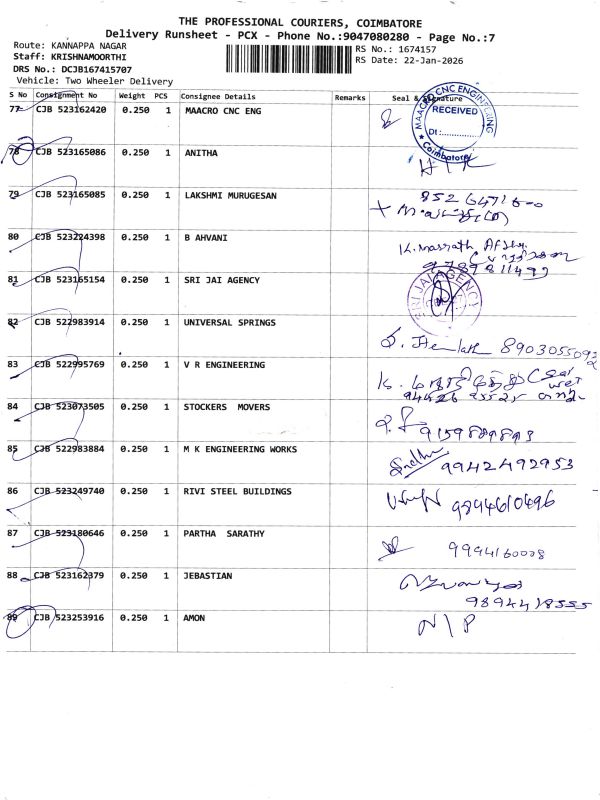 THE PROFESSIONAL COURIERS, COIMBATORE
Delivery Runsheet - PCX - Phone No.:9047080280 - Page No.:7
Route: KANNAPPA NAGAR
Staff: KRISHNAMOORTHI
DRS No.: DCJB167415707
Vehicle: Two Wheeler Delivery
RS No.: 1674157
RS Date: 22-Jan-2026
S No Consignment No Weight PCS Consignee Details Remarks Seal & Signature
77 CJB 523162420 0.250 1 MAACRO CNC ENG
MAACRO CNC ENGINEERING
RECEIVED
Dt:
Coimbatore
78 CJB 523165086 0.250 1 ANITHA
79 CJB 523165085 0.250 1 LAKSHMI MURUGESAN
80 CJB 523224398 0.250 1 B AHVANI
81 CJB 523165154 0.250 1 SRI JAI AGENCY
SRI JAI AGENCY
82 CJB 522983914 0.250 1 UNIVERSAL SPRINGS
8903055092
83 CJB 522995769 0.250 1 V R ENGINEERING
84 CJB 523073505 0.250 1 STOCKERS MOVERS
9159889893
85 CJB 522983884 0.250 1 M K ENGINEERING WORKS
9942492953
86 CJB 523249740 0.250 1 RIVI STEEL BUILDINGS
9894610496
87 CJB 523180646 0.250 1 PARTHA SARATHY
9994160008
88 CJB 523162379 0.250 1 JEBASTIAN
9894418555
89 CJB 523253916 0.250 1 AMON
N/P